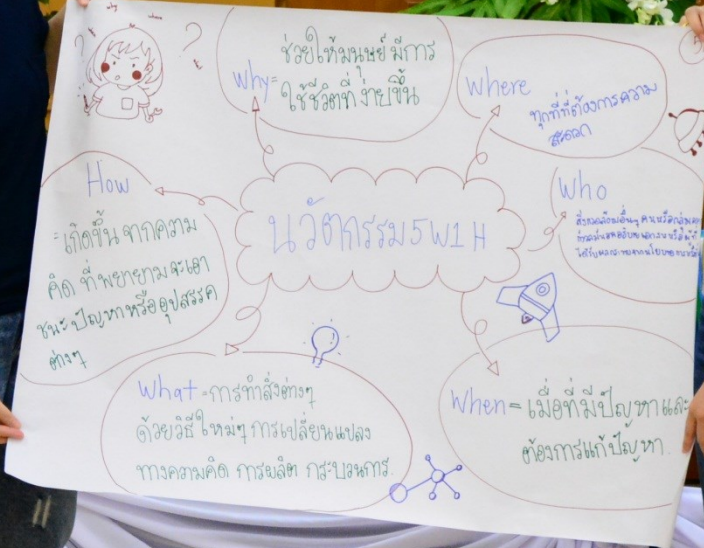 why
where
why
why=
ช่วยให้มนุษย์มีการ
ใช้ชีวิตที่ง่ายขึ้น
where
ทุกที่ที่ต้องการความ
สะดวก
How
=เกิดขึ้นจากความ
คิด ที่พยายามจะเอา
ชนะปัญหาหรืออุปสรรค
ต่างๆ
นวัตกรรม5W1H
who
what=การทำสิ่งต่างๆ
ด้วยวิธีใหม่ๆ การเปลี่ยนแปลง
ทางความคิด การผลิต กระบวนการ.
when=เมื่อที่มีปัญหาและ
ต้องการแก้ปัญหา.